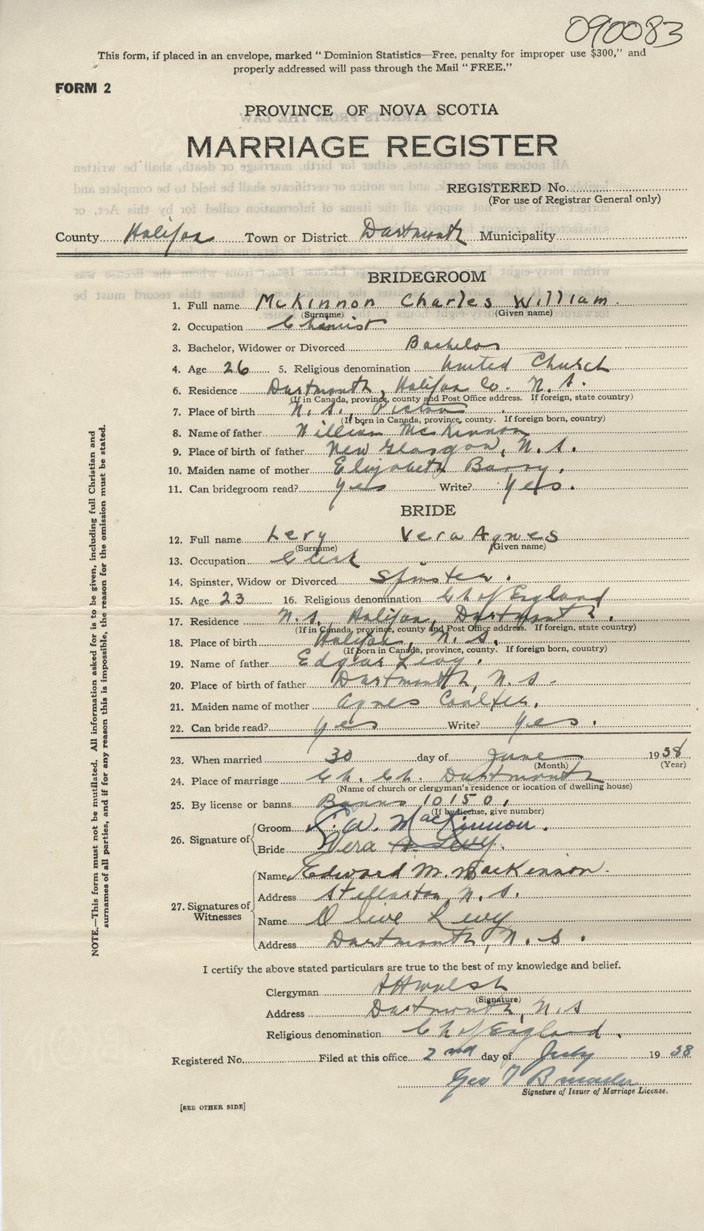 090083
This form, if placed in an envelope, marked "Dominion Statistics—Free, penalty for improper use $300," and
properly addressed will pass through the Mail "FREE."
FORM 2
PROVINCE OF NOVA SCOTIA
MARRIAGE REGISTER
REGISTERED No.
(For use of Registrar General only)
County Halifax Town or District Dartmouth Municipality
BRIDEGROOM
1. Full name McKinnon Charles William
(Surname) (Given name)
2. Occupation Chemist
3. Bachelor, Widower or Divorced Bachelor
4. Age 26 5. Religious denomination United Church
6. Residence Dartmouth, Halifax Co. N.S.
(If in Canada, province, county and Post Office address. If foreign, state country)
7. Place of birth N.S., Pictou
(If born in Canada, province, county. If foreign born, country)
8. Name of father William McKinnon
9. Place of birth of father New Glasgow, N.S.
10. Maiden name of mother Elizabeth Barry.
11. Can bridegroom read? yes Write? yes.
BRIDE
12. Full name Levy Vera Agnes
(Surname) (Given name)
13. Occupation Clerk
14. Spinster, Widow or Divorced Spinster.
15. Age 23 16. Religious denomination Ch of England
17. Residence N.S. Halifax, Dartmouth.
(If in Canada, province, county and Post Office address. If foreign, state country)
18. Place of birth Halifax, N.S.
(If born in Canada, province, county. If foreign born, country)
19. Name of father Edgar Levy.
20. Place of birth of father Dartmouth, N.S.
21. Maiden name of mother Agnes
22. Can bride read? yes Write? yes.
23. When married 30 day of June 1938
(Month) (Year)
24. Place of marriage Ch. Ch. Dartmouth
(Name of church or clergyman's residence or location of dwelling house)
25. By license or banns Banns 10150.
(If by license, give number)
26. Signature of
Groom C. W. MacKinnon.
Bride Vera A Levy.
27. Signatures of Witnesses
Name Edward M. MacKinnon.
Address Stellarton, N.S.
Name Olive Levy
Address Dartmouth, N.S.
I certify the above stated particulars are true to the best of my knowledge and belief.
Clergyman
(Signature)
Address Dartmouth, N.S
Religious denomination Ch of England.
Registered No. Filed at this office 2nd day of July 1938
Geo T
Signature of Issuer of Marriage License.
[SEE OTHER SIDE]
NOTE.—This form must not be mutilated. All information asked for is to be given, including full Christian and
surnames of all parties, and if for any reason this is impossible, the reason for the omission must be stated.